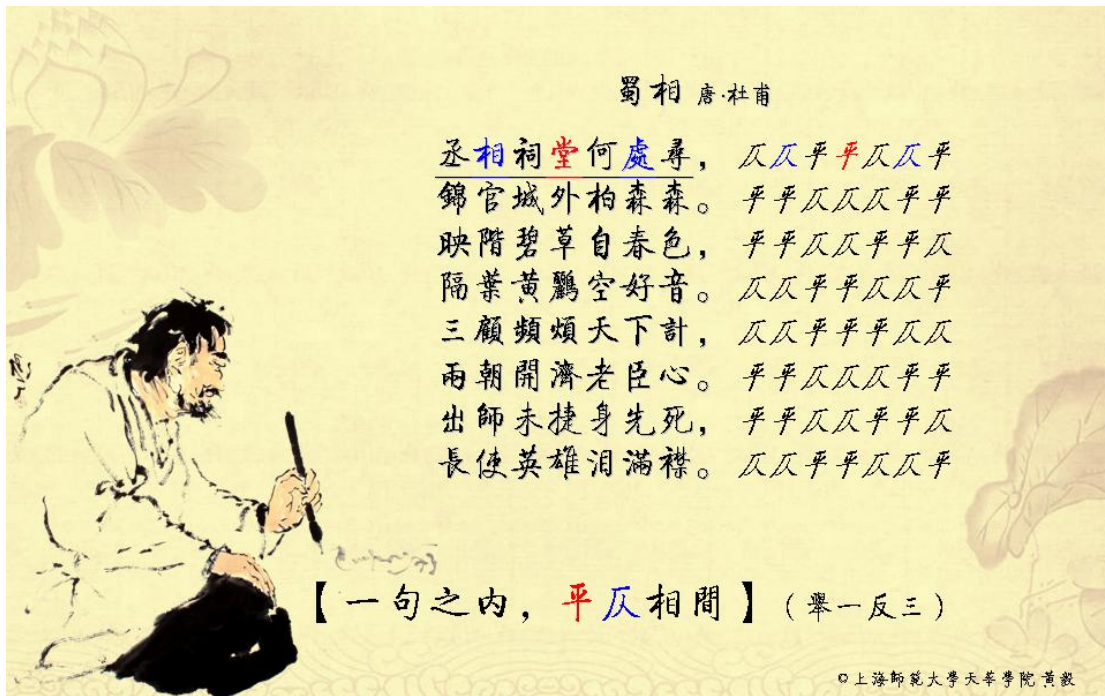 蜀相 唐·杜甫
丞相祠堂何處尋， 仄仄平平仄仄平
錦官城外柏森森。 平平仄仄仄平平
映階碧草自春色， 平平仄仄平平仄
隔葉黃鸝空好音。 仄仄平平仄仄平
三顧頻煩天下計， 仄仄平平平仄仄
兩朝開濟老臣心。 平平仄仄仄平平
出師未捷身先死， 平平仄仄平平仄
長使英雄泪滿襟。 仄仄平平仄仄平
【一句之內，平仄相間】（舉一反三）
©上海師範大學天華學院 黃毅